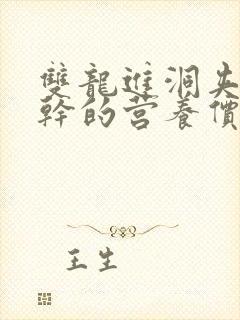 雙龍進洞夹
幹的营養價
王生